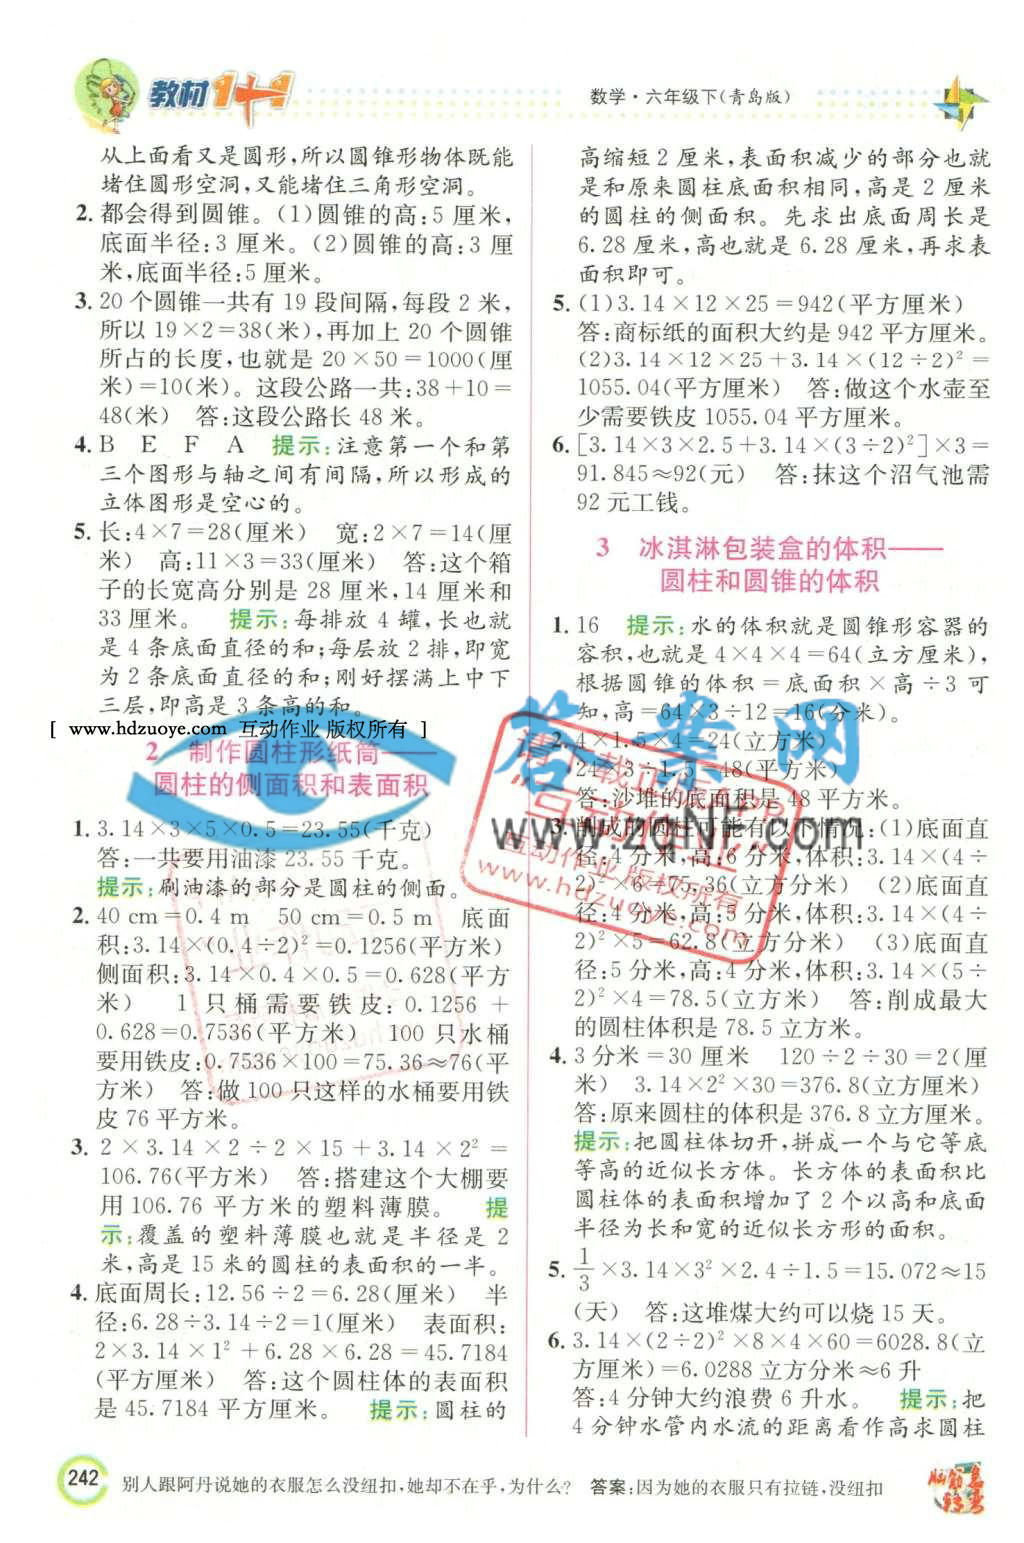 教材1+1
数学·六年级下(青岛版)
从上面看又是圆形,所以圆锥形物体既能
堵住圆形空洞,又能堵住三角形空洞。
2. 都会得到圆锥。(1)圆锥的高:5厘米,
底面半径:3厘米。(2)圆锥的高:3厘
米,底面半径:5厘米。
3. 20个圆锥一共有19段间隔,每段2米,
所以19×2=38(米),再加上20个圆锥
所占的长度,也就是20×50=1000(厘
米)=10(米)。这段公路一共:38+10=
48(米) 答:这段公路长48米。
4. B E F A 提示:注意第一个和第
三个图形与轴之间有间隔,所以形成的
立体图形是空心的。
5. 长:4×7=28(厘米) 宽:2×7=14(厘
米) 高:11×3=33(厘米) 答:这个箱
子的长宽高分别是28厘米,14厘米和
33厘米。 提示:每排放4罐,长也就
是4条底面直径的和;每层放2排,即宽
为2条底面直径的和;刚好摆满上中下
三层,即高是3条高的和。
[ www.hdzuoye.com 互动作业 版权所有 ]
2 制作圆柱形纸筒——
圆柱的侧面积和表面积
1. 3.14×3×5×0.5=23.55(千克)
答:一共要用油漆23.55千克。
提示:刷油漆的部分是圆柱的侧面。
2. 40 cm=0.4 m 50 cm=0.5 m 底面
积:3.14×(0.4÷2)²=0.1256(平方米)
侧面积:3.14×0.4×0.5=0.628(平方
米) 1只桶需要铁皮:0.1256+
0.628=0.7536(平方米) 100只水桶
要用铁皮:0.7536×100=75.36≈76(平
方米) 答:做100只这样的水桶要用铁
皮76平方米。
3. 2×3.14×2÷2×15+3.14×2²=
106.76(平方米) 答:搭建这个大棚要
用106.76平方米的塑料薄膜。 提
示:覆盖的塑料薄膜也就是半径是2
米,高是15米的圆柱的表面积的一半。
4. 底面周长:12.56÷2=6.28(厘米) 半
径:6.28÷3.14÷2=1(厘米) 表面积:
2×3.14×1²+6.28×6.28=45.7184
(平方厘米) 答:这个圆柱体的表面积
是45.7184平方厘米。 提示:圆柱的
高缩短2厘米,表面积减少的部分也就
是和原来圆柱底面积相同,高是2厘米
的圆柱的侧面积。先求出底面周长是
6.28厘米,高也就是6.28厘米,再求表
面积即可。
5. (1)3.14×12×25=942(平方厘米)
答:商标纸的面积大约是942平方厘米。
(2)3.14×12×25+3.14×(12÷2)²=
1055.04(平方厘米) 答:做这个水壶至
少需要铁皮1055.04平方厘米。
6. [3.14×3×2.5+3.14×(3÷2)²]×3=
91.845≈92(元) 答:抹这个沼气池需
92元工钱。
3 冰淇淋包装盒的体积——
圆柱和圆锥的体积
1. 16 提示:水的体积就是圆锥形容器的
容积,也就是4×4×4=64(立方厘米),
根据圆锥的体积=底面积×高÷3可
知,高=64×3÷12=16(分米)。
2. 4×1.5×4=24(立方米)
24×3÷1.5=48(平方米)
答:沙堆的底面积是48平方米。
3. 削成的圆柱可能有以下情况:(1)底面直
径:4分米,高:6分米,体积:3.14×(4÷
2)²×6=75.36(立方分米) (2)底面直
径:4分米,高:5分米,体积:3.14×(4÷
2)²×5=62.8(立方分米) (3)底面直
径:5分米,高:4分米,体积:3.14×(5÷
2)²×4=78.5(立方分米) 答:削成最大
的圆柱体积是78.5立方米。
4. 3分米=30厘米 120÷2÷30=2(厘
米) 3.14×2²×30=376.8(立方厘米)
答:原来圆柱的体积是376.8立方厘米。
提示:把圆柱体切开,拼成一个与它等底
等高的近似长方体。长方体的表面积比
圆柱体的表面积增加了2个以高和底面
半径为长和宽的近似长方形的面积。
5. 1/3×3.14×3²×2.4÷1.5=15.072≈15
(天) 答:这堆煤大约可以烧15天。
6. 3.14×(2÷2)²×8×4×60=6028.8(立
方厘米)=6.0288立方分米≈6升
答:4分钟大约浪费6升水。 提示:把
4分钟水管内水流的距离看作高求圆柱
答案网
www.zqnf.com
请下载正版APP
“互动作业”
互动作业 版权所有
www.hdzuoye.com
242
别人跟阿丹说她的衣服怎么没纽扣,她却不在乎,为什么? 答案:因为她的衣服只有拉链,没纽扣
脑筋急转弯